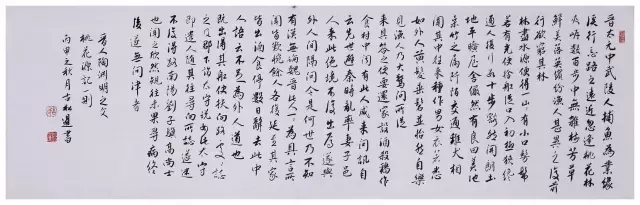 晉太元中武陵人捕魚為業緣
溪行忘路之遠近忽逢桃花林
夾岸數百步中無雜樹芳草
鮮美落英繽紛漁人甚異之復前
行欲窮其林
林盡水源便得一山山有小口髣髴
若有光便捨船從口入初極狹纔
通人復行數十步豁然開朗土
地平曠屋舍儼然有良田美池
桑竹之屬阡陌交通雞犬相
聞其中往來種作男女衣著悉
如外人黃髮垂髫並怡然自樂
見漁人乃大驚問所從
來具答之便要還家設酒殺雞作
食村中聞有此人咸來問訊自
云先世避秦時亂率妻子邑
人來此絕境不復出焉遂與
外人間隔問今是何世乃不知
有漢無論魏晉此人一一為具言所
聞皆嘆惋餘人各復延至其家
皆出酒食停數日辭去此中
人語云不足為外人道也
既出得其船便扶向路處處誌
之及郡下詣太守說如此太守
即遣人隨其往尋向所誌遂迷
不復得路南陽劉子驥高尚士
也聞之欣然規往未果尋病終
後遂無問津者
晉人陶淵明之文
桃花源記一則
丙申之秋月古松書